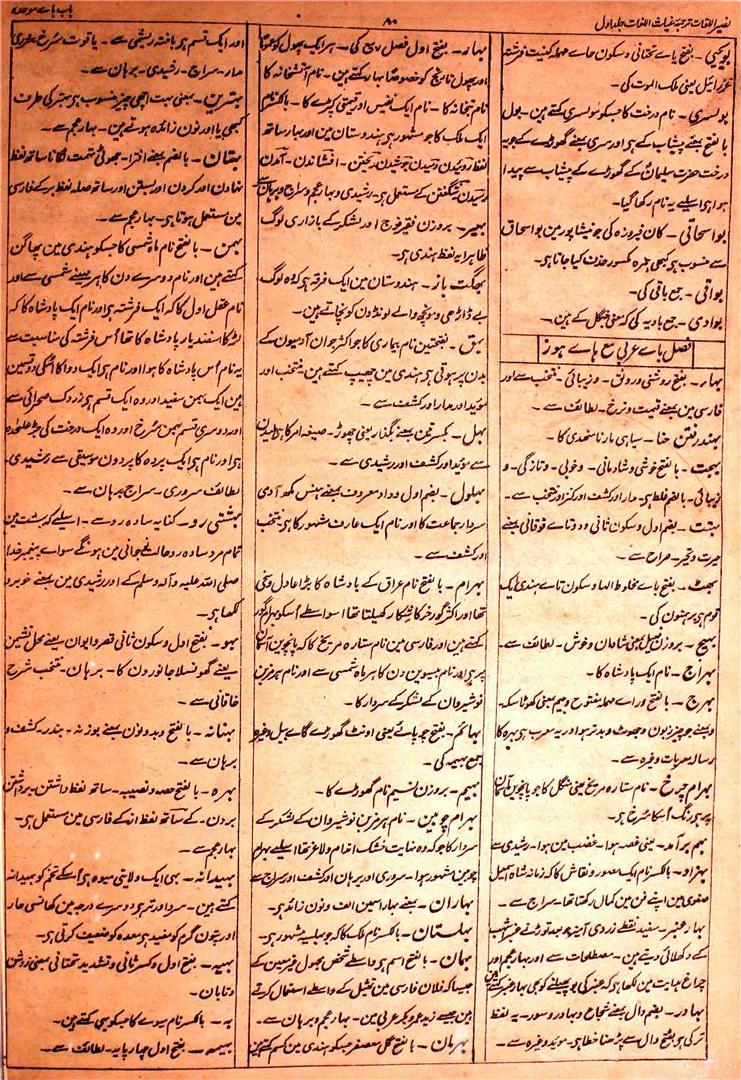 نصیر اللغات ترجمۂ غیاث اللغات جلد اول
۸۰
باب باے موحدہ
بویحییٰ - بفتح یاے تحتانی و سکون حاے مہملہ کنیت فرشتہ
عزرائیل یعنی ملک الموت کی -
بولسری - نام درخت کا جسکو مولسری کہتے ہین - بول
بالفتح بمعنے پیشاب کے ہی اور سری بمعنے گھوڑے کے جو یہ
درخت حضرت سلیمانؑ کے گھوڑے کے پیشاب سے پیدا
ہوا ہی اسلیے یہ نام رکھا گیا -
بواسحاقی - کان فیروزہ کی جو نیشاپور مین بواسحاق
سے منسوب ہی کبھی ہمزہ کمسور حذف کیا جاتا ہی -
بواقی - جمع باقی کی -
بوادی - جمع بادیہ کی کہ بمعنی جنگل کے ہین -
فصل باے عربی مع ہاے ہوز
بہار - بفتح روشنی و رونق - و زیبائی - منتخب سے اور
فارسی مین بمعنے قیمت و نرخ - لطائف سے -
بہندر فتن حنا - سیاہی مارنا منہدی کا
بہجت - بالفتح خوشی و شادمانی - و خوبی - و تازگی - و
زیبائی - بالضم غلط ہی - مدار اور کشف اور کنز اور منتخب سے -
بہتت - بضم اول و سکون ثانی و دو تاے فوقانی بمعنے
حیرت و تحیر - صراح سے -
بھٹ - بفتح باے مخلوط الہا و سکون تاے ہندی ایک
قوم ہی برہمنون کی -
بہیج - بروزن جمیل بمعنی شادمان و خوش - لطائف سے -
بہراج - نام ایک پادشاہ کا -
بہرج - بالفتح و راے مہملہ مفتوح و جیم بمعنی کھوٹا سکہ -
و بمعنے ہر چیز زبون و جھوٹ و بدتر ہوا اور یہ معرب ہی بہرہ کا
رسالہ معربات وغیرہ سے -
بہرام چرخ - نام ستارہ مریخ یعنی منگل کا جو پانچوین آسمان
پر ہی رنگ اُسکا سرخ ہی -
بہم برآمد - یعنی غصہ ہوا - غضب مین ہوا - رشیدی سے
بہزاد - بالکسر نام ایک مصور و نقاش کا کہ زمانہ شاہ اسمعیل
صفوی مین اپنے فن مین کمال رکھتا تھا - سراج سے -
بہار عنبر - سفید نقطے زردی آمیز جو بعد توڑنے عنبر اشہب
کے دکھلائی دیتے ہین - مصطلحات سے اور بہار عجم اور
چراغ ہدایت مین لکھا ہی کہ عنبر کی بو پھیلنے کو بھی بہار عنبر کہتے ہین
بہادر - بضم دال بمعنے شجاع و بہادر و سور - یہ لفظ
ترکی ہی بفتح دال سے پڑھنا خطا ہی - موید وغیرہ سے -
بہار - بفتح اول فصل ربیع کی - ہر ایک پھول کو عموماً
اور پھول نارنج کو خصوصاً بہار کہتے ہین - نام آتشخانہ کا
نام بتخانہ کا - نام ایک نفیس اور قیمتی کپڑے کا - بالکسر نام
ایک ملک کا جو مشہور ہی ہندوستان مین اور بہار ساتھ
لفظ روئیدن و دمیدن و جوشیدن و ریختن - افشاندن - آمدن
و رسیدن و شگفتن کے مستعمل ہی - رشیدی و بہار عجم و سراج و برہان سے
بہیر - بروزن فقیر فوج اور لشکر کے بازاری لوگ
ظاہرا یہ لفظ ہندی ہی -
بھگت باز - ہندوستان مین ایک فرقہ ہی کہ وہ لوگ
بے ڈاڑھی و مونچھ والے لونڈون کو نچاتے ہین -
بہق - بفتحتین نام بیماری کا جو اکثر جوان آدمیون کے
بدن پر ہوتی ہی ہندی مین چھیپ کہتے ہین منتخب اور
موید اور مدار اور کشف سے -
بہل - بکسرتین بمعنے بگذار یعنی چھوڑ - صیغہ امر کا ہی ہلیدن
سے موید اور کشف اور رشیدی سے -
بہلول - بضم اول و واو معروف بمعنے ہنس مکھ آدمی
سردار جماعت کا اور نام ایک عارف مشہور کا ہی منتخب
اور کشف سے -
بہرام - بالفتح نام عراق کے بادشاہ کا بڑا عادل و سخی
تھا اور اکثر گورخر کا شکار کھیلتا تھا اسواسطے اُسکو بہرام گور
کہتے ہین اور فارسی مین نام ستارہ مریخ کا کہ پانچوین آسمان
پر ہی اور نام بیسوین دن کا ہر ماہ شمسی سے اور نام ہرمز بن
نوشیروان کے لشکر کے سردار کا -
بہائم - بفتح چوپائے یعنی اونٹ گھوڑے گاے بیل وغیرہ
جمع بہیمہ کی -
بہیم - بروزن نسیم نام گھوڑے کا -
بہرام چوبین - نام ہرمز بن نوشیروان کے لشکر کے
سردار کا جو کہ وہ نہایت خشک اندام و لاغر تھا اسلیے بہرام
چوبین مشہور ہوا - سروری اور برہان اور کشف اور سراج سے
بہاران - بمعنے بہار اسمین الف و نون زائد ہی -
بہلستان - بالکسر نام ملک کا کہ جو بھیلسہ مشہور ہی -
بہمان - بالفتح اسم ہی واسطے شخص مجہول غیر معین کے
جیسا کہ فلان فارسی مین تمثیل کے واسطے استعمال کرتے
ہین جیسے زید عمرو بکر عربی مین - بہار عجم و برہان سے -
بہرمان - بالفتح گل معصفر جسکو ہندی مین کسم کہتے ہین
اور ایک قسم ہی بافتہ ریشمی سے - یاقوت سُرخ بھری
مدار - سراج - رشیدی - برہان سے -
بہترین - بمعنی بہت اچھی چیز منسوب ہی بہتر کی طرف
کبھی یا اور نون زائد ہوتے ہین - بہار عجم سے -
بہتان - بالضم بمعنے افترا - جھوٹی تہمت لگانا ساتھ لفظ
نہادن اور کردن اور بستن اور ساتھ صلہ لفظ بر کے فارسی
مین مستعمل ہوتا ہی - بہار عجم سے -
بہمن - بالفتح نام ماہ شمسی کا جسکو ہندی مین پھاگن
کہتے ہین اور نام دوسرے دن کا ہر مہینے شمسی سے اور
نام عقل اول کا کہ ایک فرشتہ ہی اور نام ایک پادشاہ کا کہ
لڑکا اسفندیار پادشاہ کا تھا اُس فرشتہ کی مناسبت سے
یہ نام اُس پادشاہ کا ہوا اور نام ہی ایک دوا کا اسکی دو قسمین
ہین ایک بہمن سفید اور وہ ایک قسم ہی زردک صحرائی سے
اور دوسری قسم بہمن سُرخ اور وہ ایک درخت کی جڑ علٰحدہ
ہی اور نام ہی ایک پردہ کا پردون موسیقی سے رشیدی -
لطائف سروری - سراج برہان سے -
بہشتی رو - کنایہ سادہ رو سے - اسلیے کہ بہشت مین
تمام مرد سادہ رو حالت جوانی مین ہونگے سواے پیغمبر خدا
صلی اللہ علیہ و آلہ وسلم کے اور رشیدی مین بمعنے خوبرو
لکھا ہی -
بہو - بفتح اول و سکون ثانی قصر و ایوان - بمعنے محل نشین
یعنے گھونسلا جانور دن کا - برہان - منتخب شرح
خاقانی سے -
بہنانہ - بالفتح و بدو نون بمعنے بوزنہ - بندر - کشف و
برہان سے -
بہرہ - بالفتح حصہ و نصیبہ - ساتھ لفظ داشتن - برداشتن
بردن - کے ساتھ لفظ از کے فارسی مین مستعمل ہی -
بہار عجم سے -
بہیدانہ - بہی ایک ولایتی میوہ ہی اُسکے تخم کو بہیدانہ
کہتے ہین - سرد اور تر ہی دوسرے درجہ مین کھانسی حار
اور تپون گرم کو مفید ہی معدہ کو ضعیف کرتی ہی -
بہیہ - بفتح اول و کسر ثانی و تشدید تحتانی بمعنی روشن
و تابان -
بہ - بالکسر نام میوے کا جسکو بہی کہتے ہین -
بہیمہ - بفتح اول چارپایہ - لطائف سے -